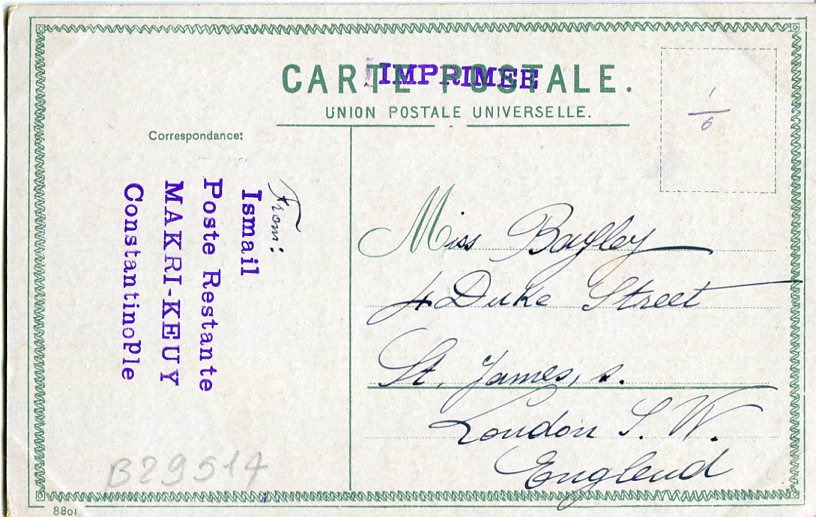 CARTE POSTALE.
IMPRIMEE
UNION POSTALE UNIVERSELLE.
Correspondance:
1/6
From:
Ismail
Poste Restante
MAKRI-KEUY
Constantinople
Miss Bayley
4 Duke Street
St. James, s.
London S. W.
Englend
B29517
8801